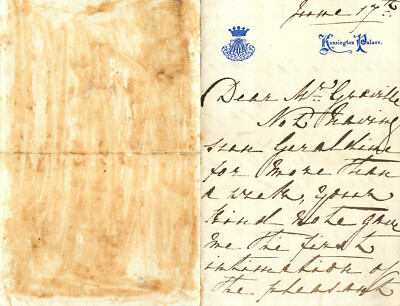 June 17th
Kensington Palace.
Dear Mrs Granville
Not having
seen Geraldine
for more than
a week, your
kind note gave
me the first
intimation of
the pleasant